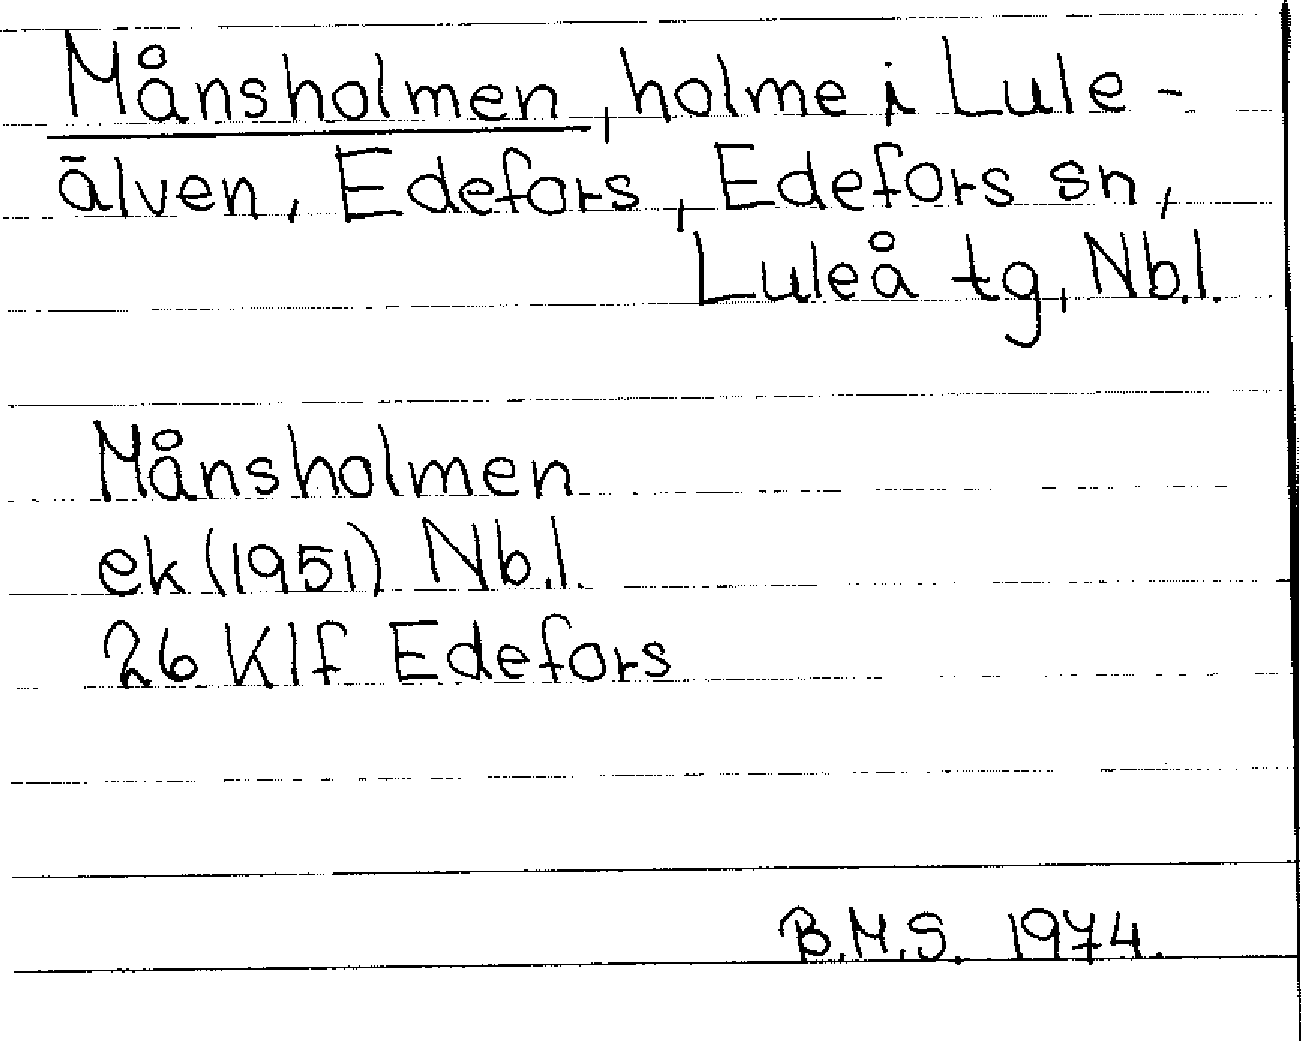 Månsholmen, holme i Lule-
älven, Edefors, Edefors sn,
Luleå tg, Nb.l.
Månsholmen
ek (1951) Nb.l.
26 Klf Edefors
B.M.S. 1974.